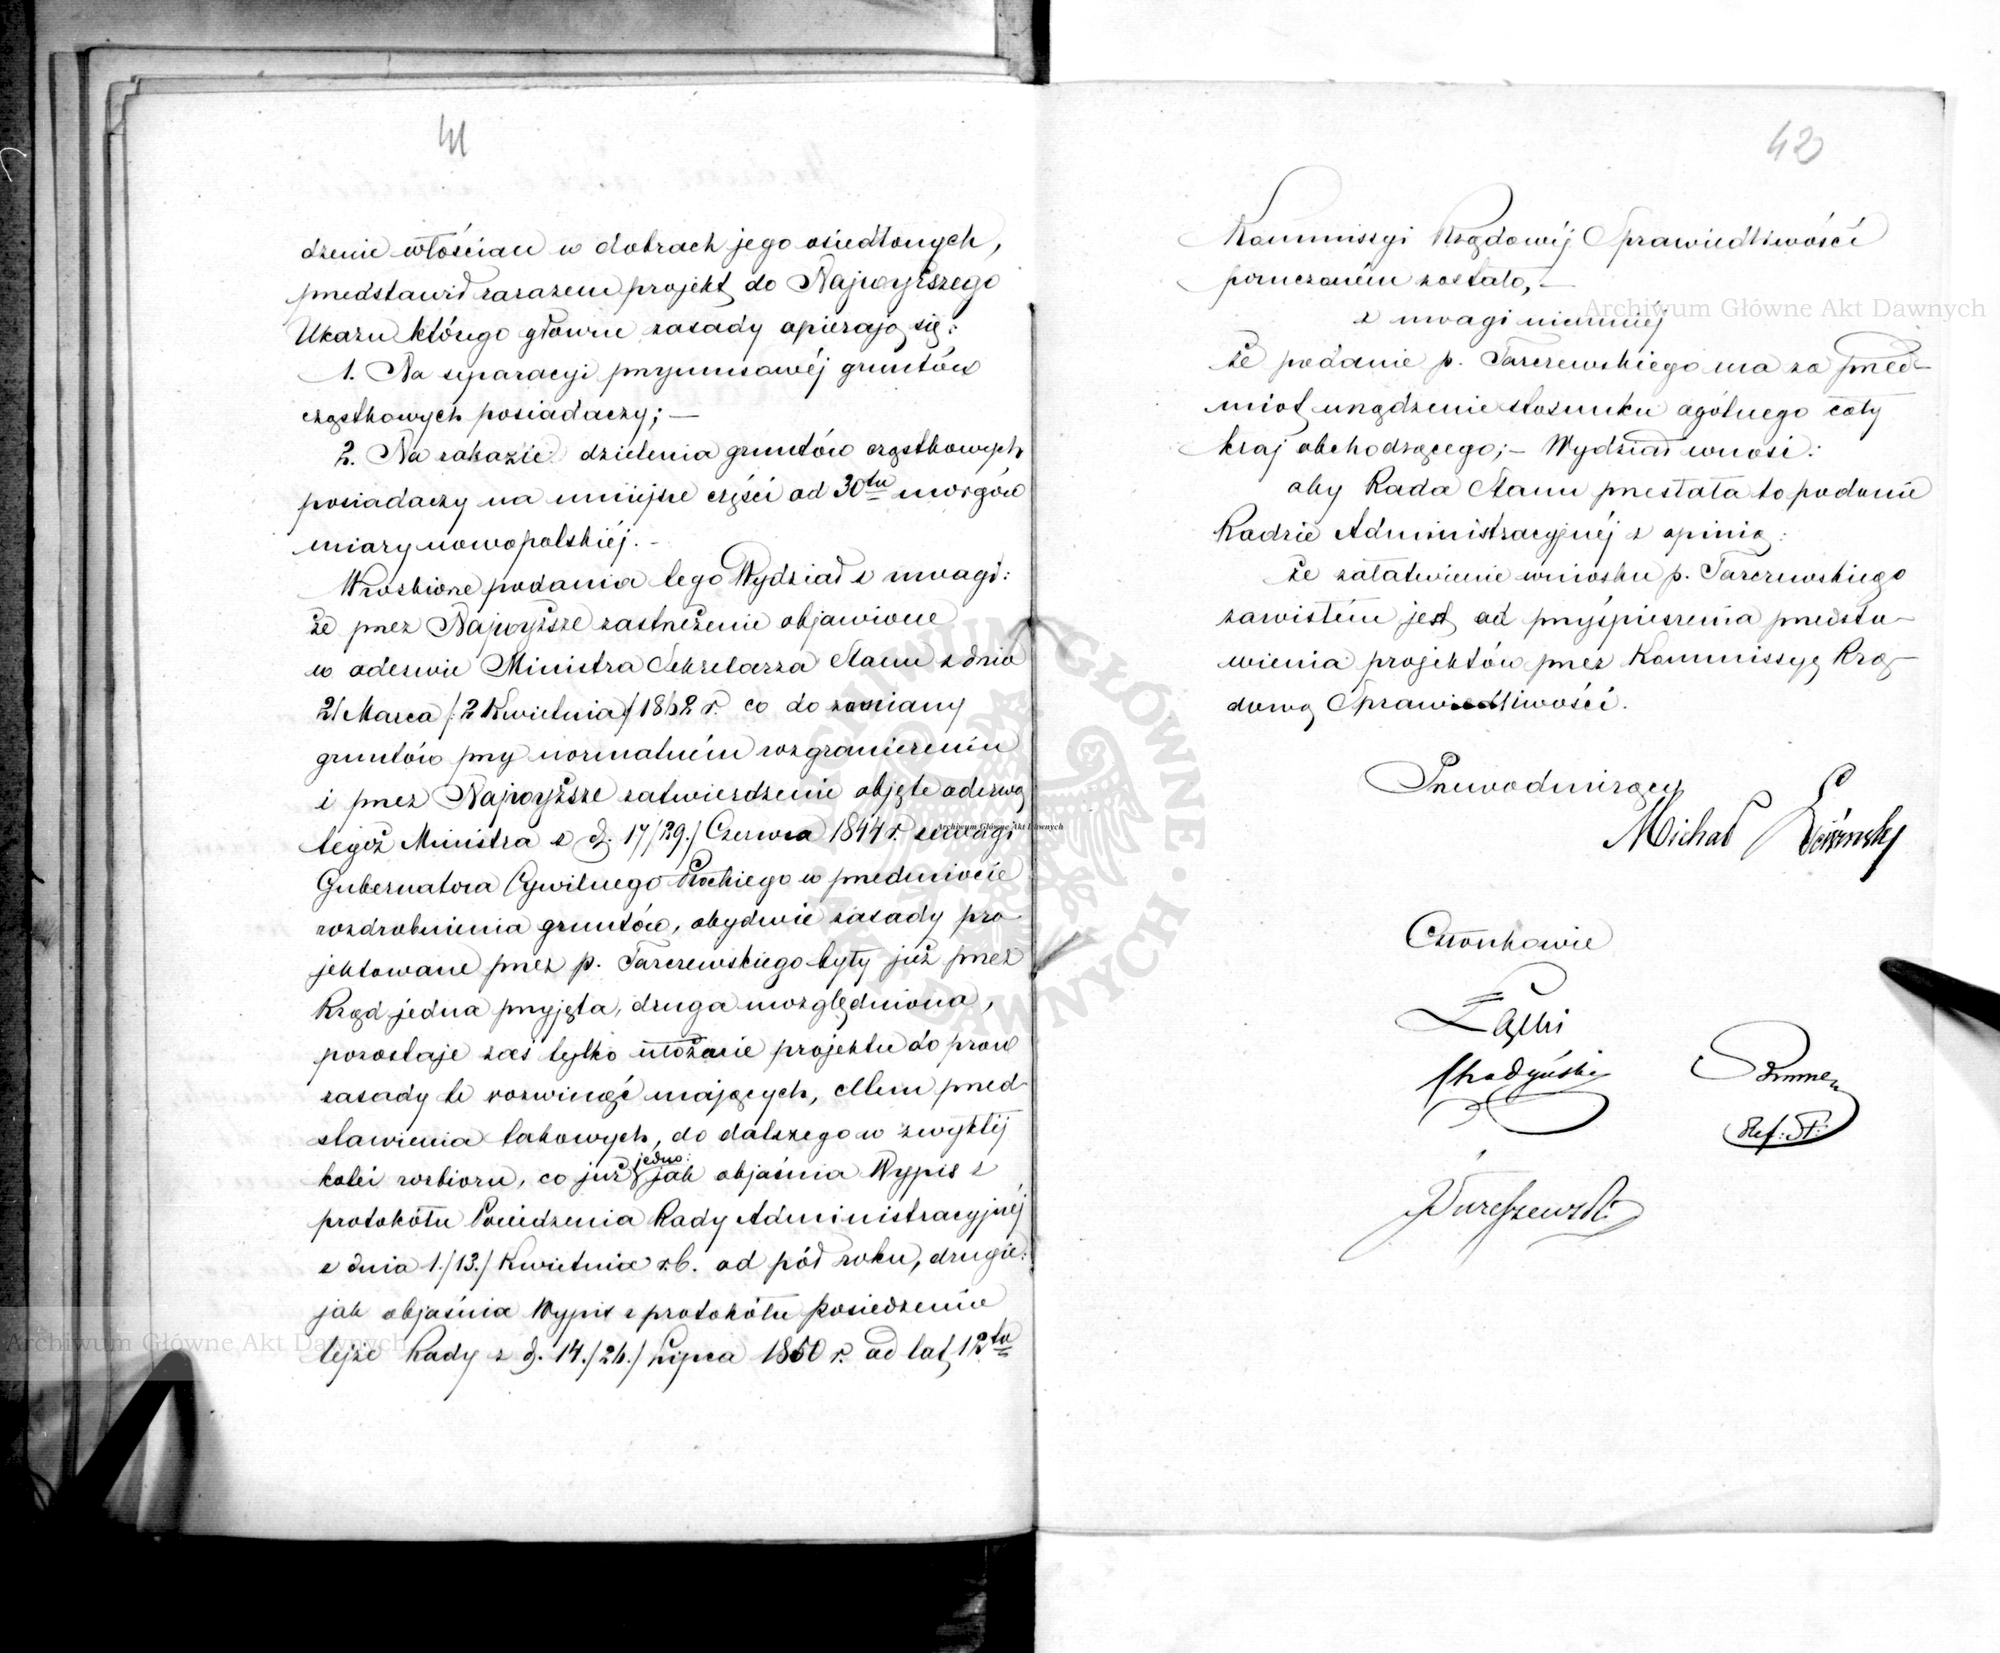 41
dzenie włościan w dobrach jego osiedlonych,
przedstawił zarazem projekt do Najwyższego
Ukazu którego główne zasady opierają się:
1. Na separacyi przymusowéj gruntów
cząstkowych posiadaczy; —
2. Na zakazie dzielenia gruntów cząstkowych
posiadaczy na mniejsze części od 30tu morgów
miary nowopolskiéj. –
W rozbiorze podania tego Wydział z uwagi:
że przez Najwyższe zastrzeżenie objawione
w odezwie Ministra Sekretarza Stanu z dnia
21 Marca /:2 Kwietnia/ 1862 r. co do zamiany
gruntów przy normalném rozgraniczeniu
i przez Najwyższe zatwierdzenie objęte odezwą
tegoż Ministra z d. 17/29./ Czerwca 1844 r. uwagi
Gubernatora Cywilnego Płockiego w przedmiocie
rozdrobnienia gruntów, obydwie zasady pro
jektowane przez p. Tarczewskiego były już przez
Rząd jedna przyjęta, druga uwzględniona,
pozostaje zaś tylko ułożenie projektu do praw
zasady te rozwinąć mających, celem przed
stawienia takowych, do dalszego w zwykłéj
kolei rozbioru, co już jedno: jak objaśnia Wypis z
protokółu Posiedzenia Rady Administracyjnéj
z dnia 1./13./ Kwietnia r.b. od pół roku, drugie:
jak objaśnia Wypis z protokółu Posiedzenia
tejże Rady z d. 14./26./ Lipca 1850 r. od lat 12tu
42
Kommissyi Rządowéj Sprawiedliwości
poruczoném zostało, —
z uwagi niemniéj
że podanie p. Tarczewskiego ma za przed-
miot urządzenie stosunku ogólnego cały
kraj obchodzącego; – Wydział wnosi:
aby Rada Stanu przesłała to podanie
Radzie Administracyjnéj z opinią:
że załatwienie wniosku p. Tarczewskiego
zawisłém jest od przyśpieszenia przedsta-
wienia projektów przez Kommissyę Rzą-
dową Sprawiedliwości.
Przewodniczący
Michał
Członkowie
Łącki
Chodyński
Ref: St:
Archiwum Główne Akt Dawnych
Archiwum Główne Akt Dawnych
Archiwum Główne Akt Dawnych
ARCHIWUM GŁÓWNE AKT DAWNYCH